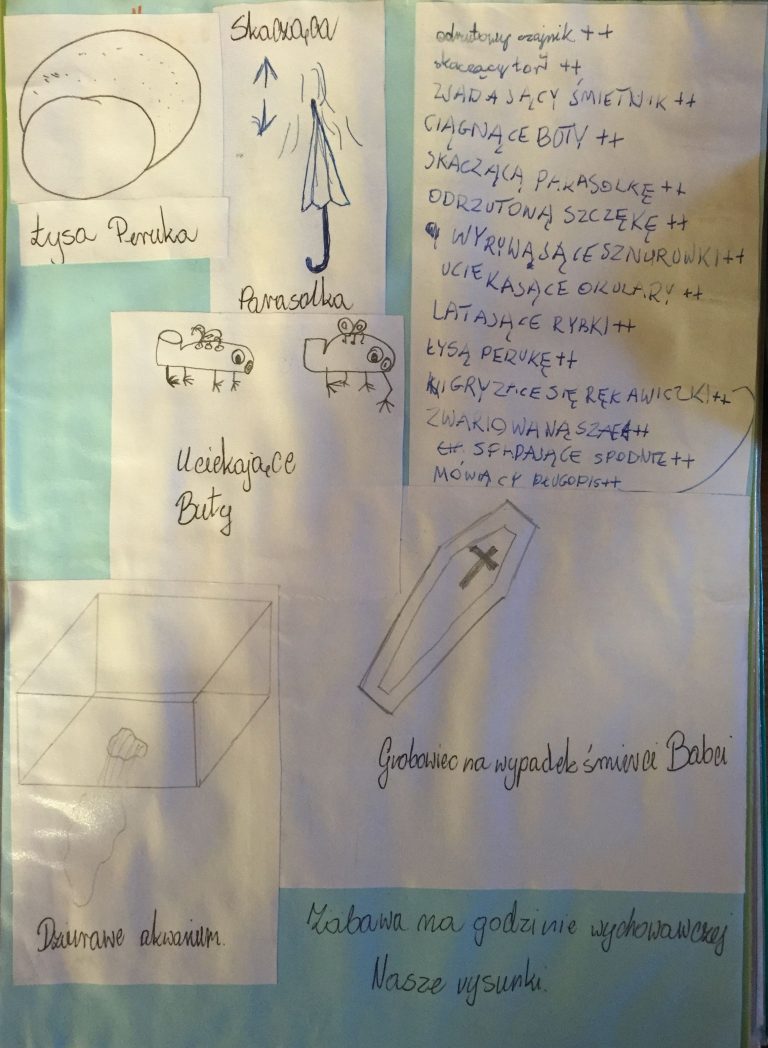 Łysa Peruka
Skacząca
Parasolka
odrzutowy czajnik ++
skaczący tort ++
ZJADAJĄCY ŚMIETNIK ++
CIĄGNĄCE BUTY ++
SKACZĄCĄ PARASOLKĘ ++
ODRZUTONĄ SZCZĘKĘ ++
WYRYWAJĄCE SZNURÓWKI ++
UCIEKAJĄCE OKULARY ++
LATAJĄCE RYBKI ++
ŁYSĄ PERUKĘ ++
GRYZĄCE SIĘ RĘKAWICZKI ++
ZWARIOWANĄ ++
SPADAJĄCE SPODNIE ++
MÓWIĄCY DŁUGOPIS ++
Uciekające
Buty
Grobowiec na wypadek śmierci Babci
Dziurawe akwarium.
Zabawa na godzinie wychowawczej
Nasze rysunki.